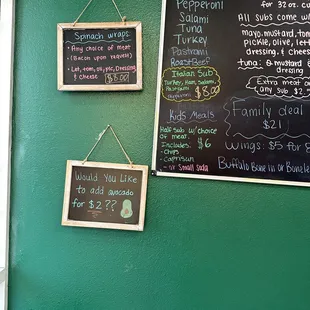 Spinach wraps
• Any choice of meat
(Bacon upon request)
• Let, tom, oil, pic, Dressing
& cheese $8.00
Would You Like
to add avocado
for $2??
Pepperoni
Salami
Tuna
Turkey
Pastrami
Roast Beef
Italian Sub
Turkey, Ham, Salami,
$8.00
Kids Meals
Half Sub w/ choice
of meat.
Includes: $6
- Chips
- Caprisun
- or small Soda
for 32 oz.
All subs come w/
mayo, mustard, tom
pickle, olive, let
onion, & cheese
tuna: mustard &
dressing
Extra meat
any sub $2.
Family deal
$21
Wings: $5 for
Buffalo Bone in or Bonele